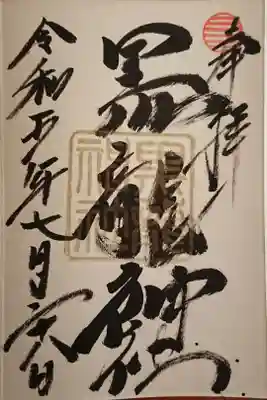 奉拝
黒龍神社
黒龍
神社
令和五年七月日